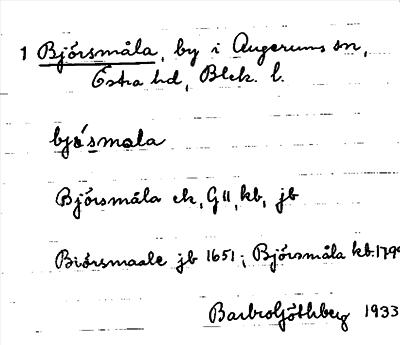 1 Björsmåla, by i Augerums sn,
Östra hd, Blek. l.
bjǿsmåla
Björsmåla ek, G11, kb, jb
Biörsmaale jb 1651; Björsmåla kb. 1799
Barbro Göthberg 1933